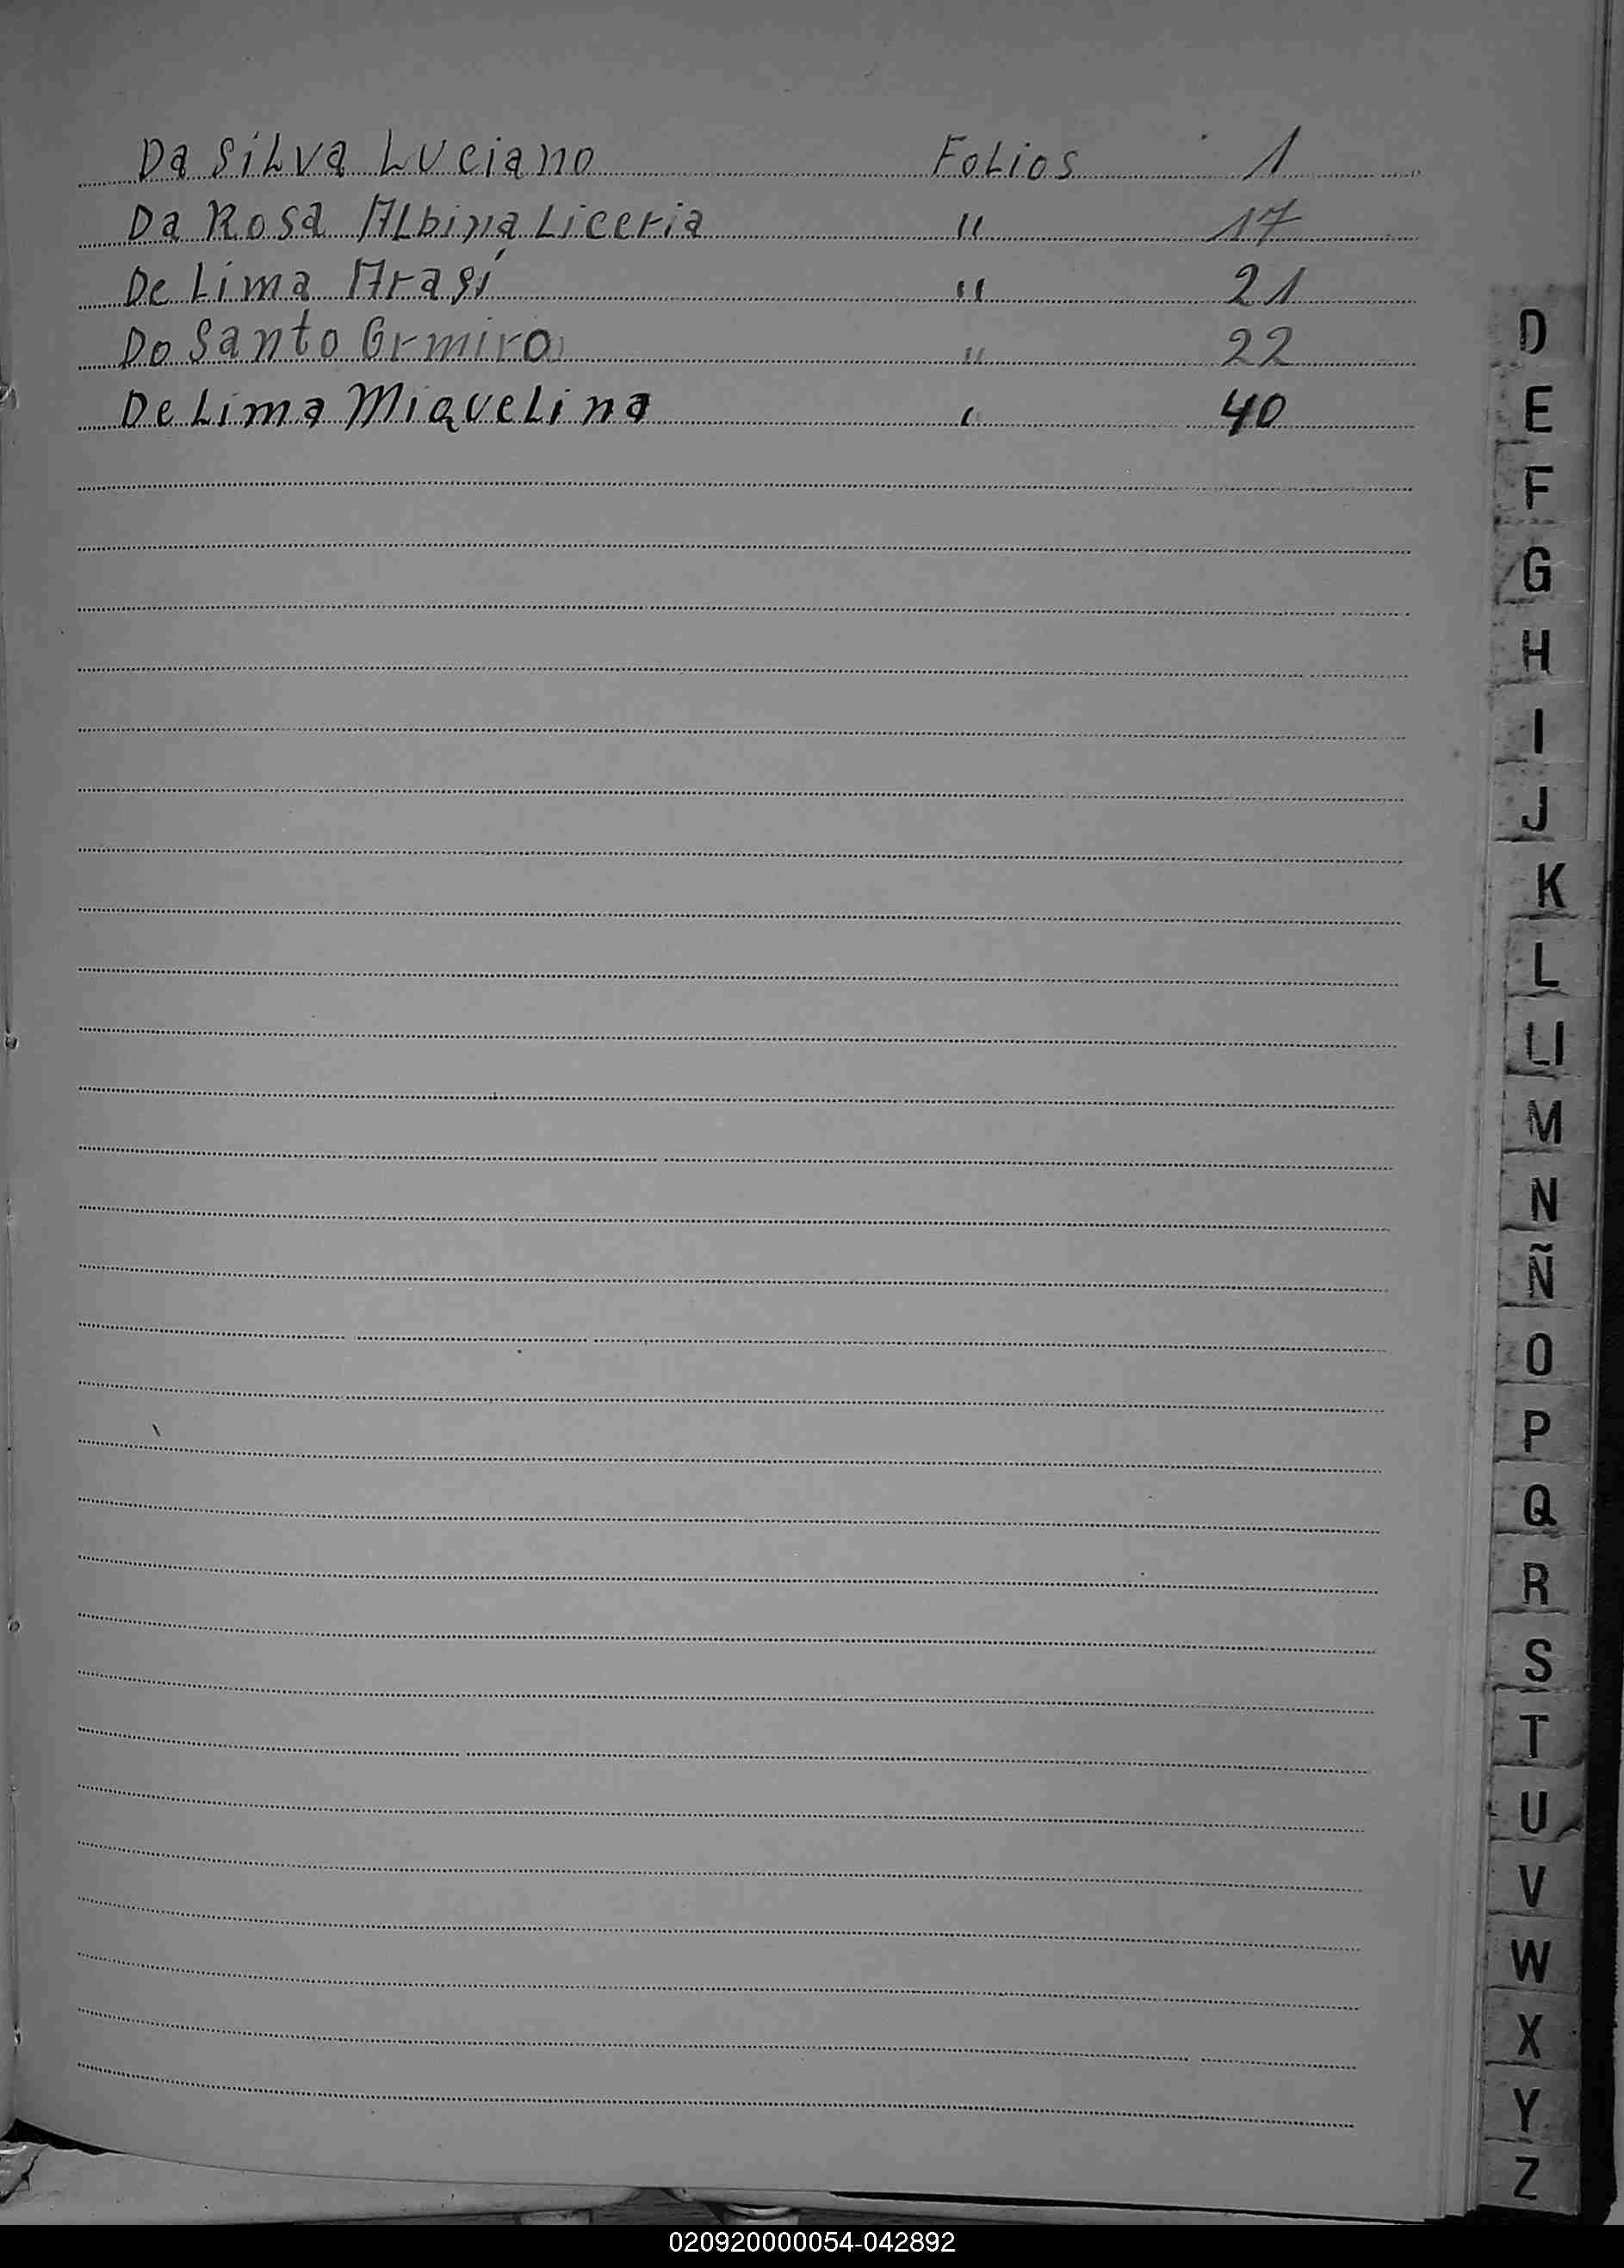 Da Silva Luciano Folios 1
Da Rosa Albina Liceria " 17
De Lima Arasí " 21
Do Santo Ormiro " 22
De Lima Miquelina " 40
D
E
F
G
H
I
J
K
L
Ll
M
N
Ñ
O
P
Q
R
S
T
U
V
W
X
Y
Z
020920000054-042892